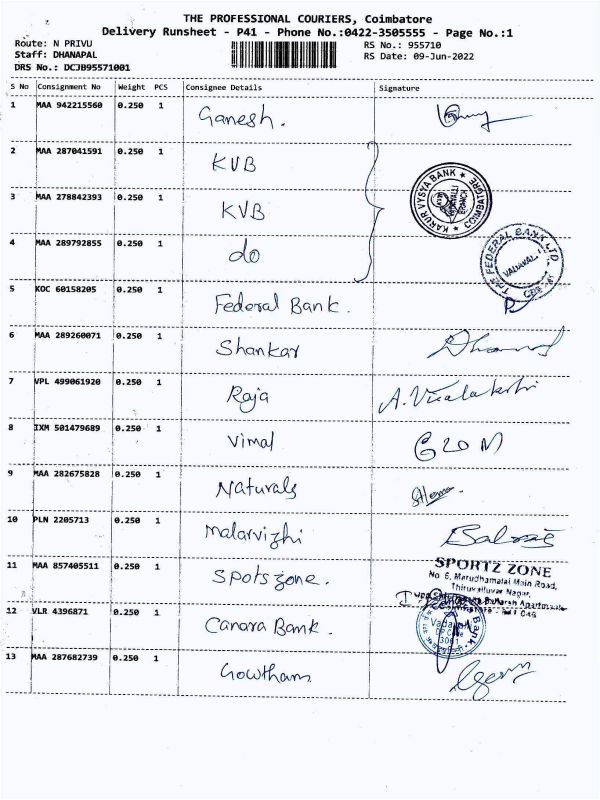 THE PROFESSIONAL COURIERS, Coimbatore
Delivery Runsheet - P41 - Phone No.:0422-3505555 - Page No.:1
Route: N PRIVU RS No.: 955710
Staff: DHANAPAL RS Date: 09-Jun-2022
DRS No.: DCJB95571001
S No Consignment No Weight PCS Consignee Details Signature
1 MAA 942215560 0.250 1 Ganesh.
2 MAA 287041591 0.250 1 KVB
KARUR VYSYA BANK COIMBATORE BRANCH
3 MAA 278842393 0.250 1 KVB
4 MAA 289792855 0.250 1 do
THE FEDERAL BANK LTD. VADAVALLI
5 KOC 60158205 0.250 1 Federal Bank.
6 MAA 289260071 0.250 1 Shankar
7 VPL 499061920 0.250 1 Raja
8 IXM 501479689 0.250 1 Vimal
9 MAA 282675828 0.250 1 Naturals
10 PLN 2205713 0.250 1 Malarvizhi
11 MAA 857405511 0.250 1 Spotszone.
SPORTZ ZONE
No 6, Marudhamalai Main Road,
Thiruvalluvar Nagar,
12 VLR 4396871 0.250 1 Canara Bank.
13 MAA 287682739 0.250 1 Gowtham